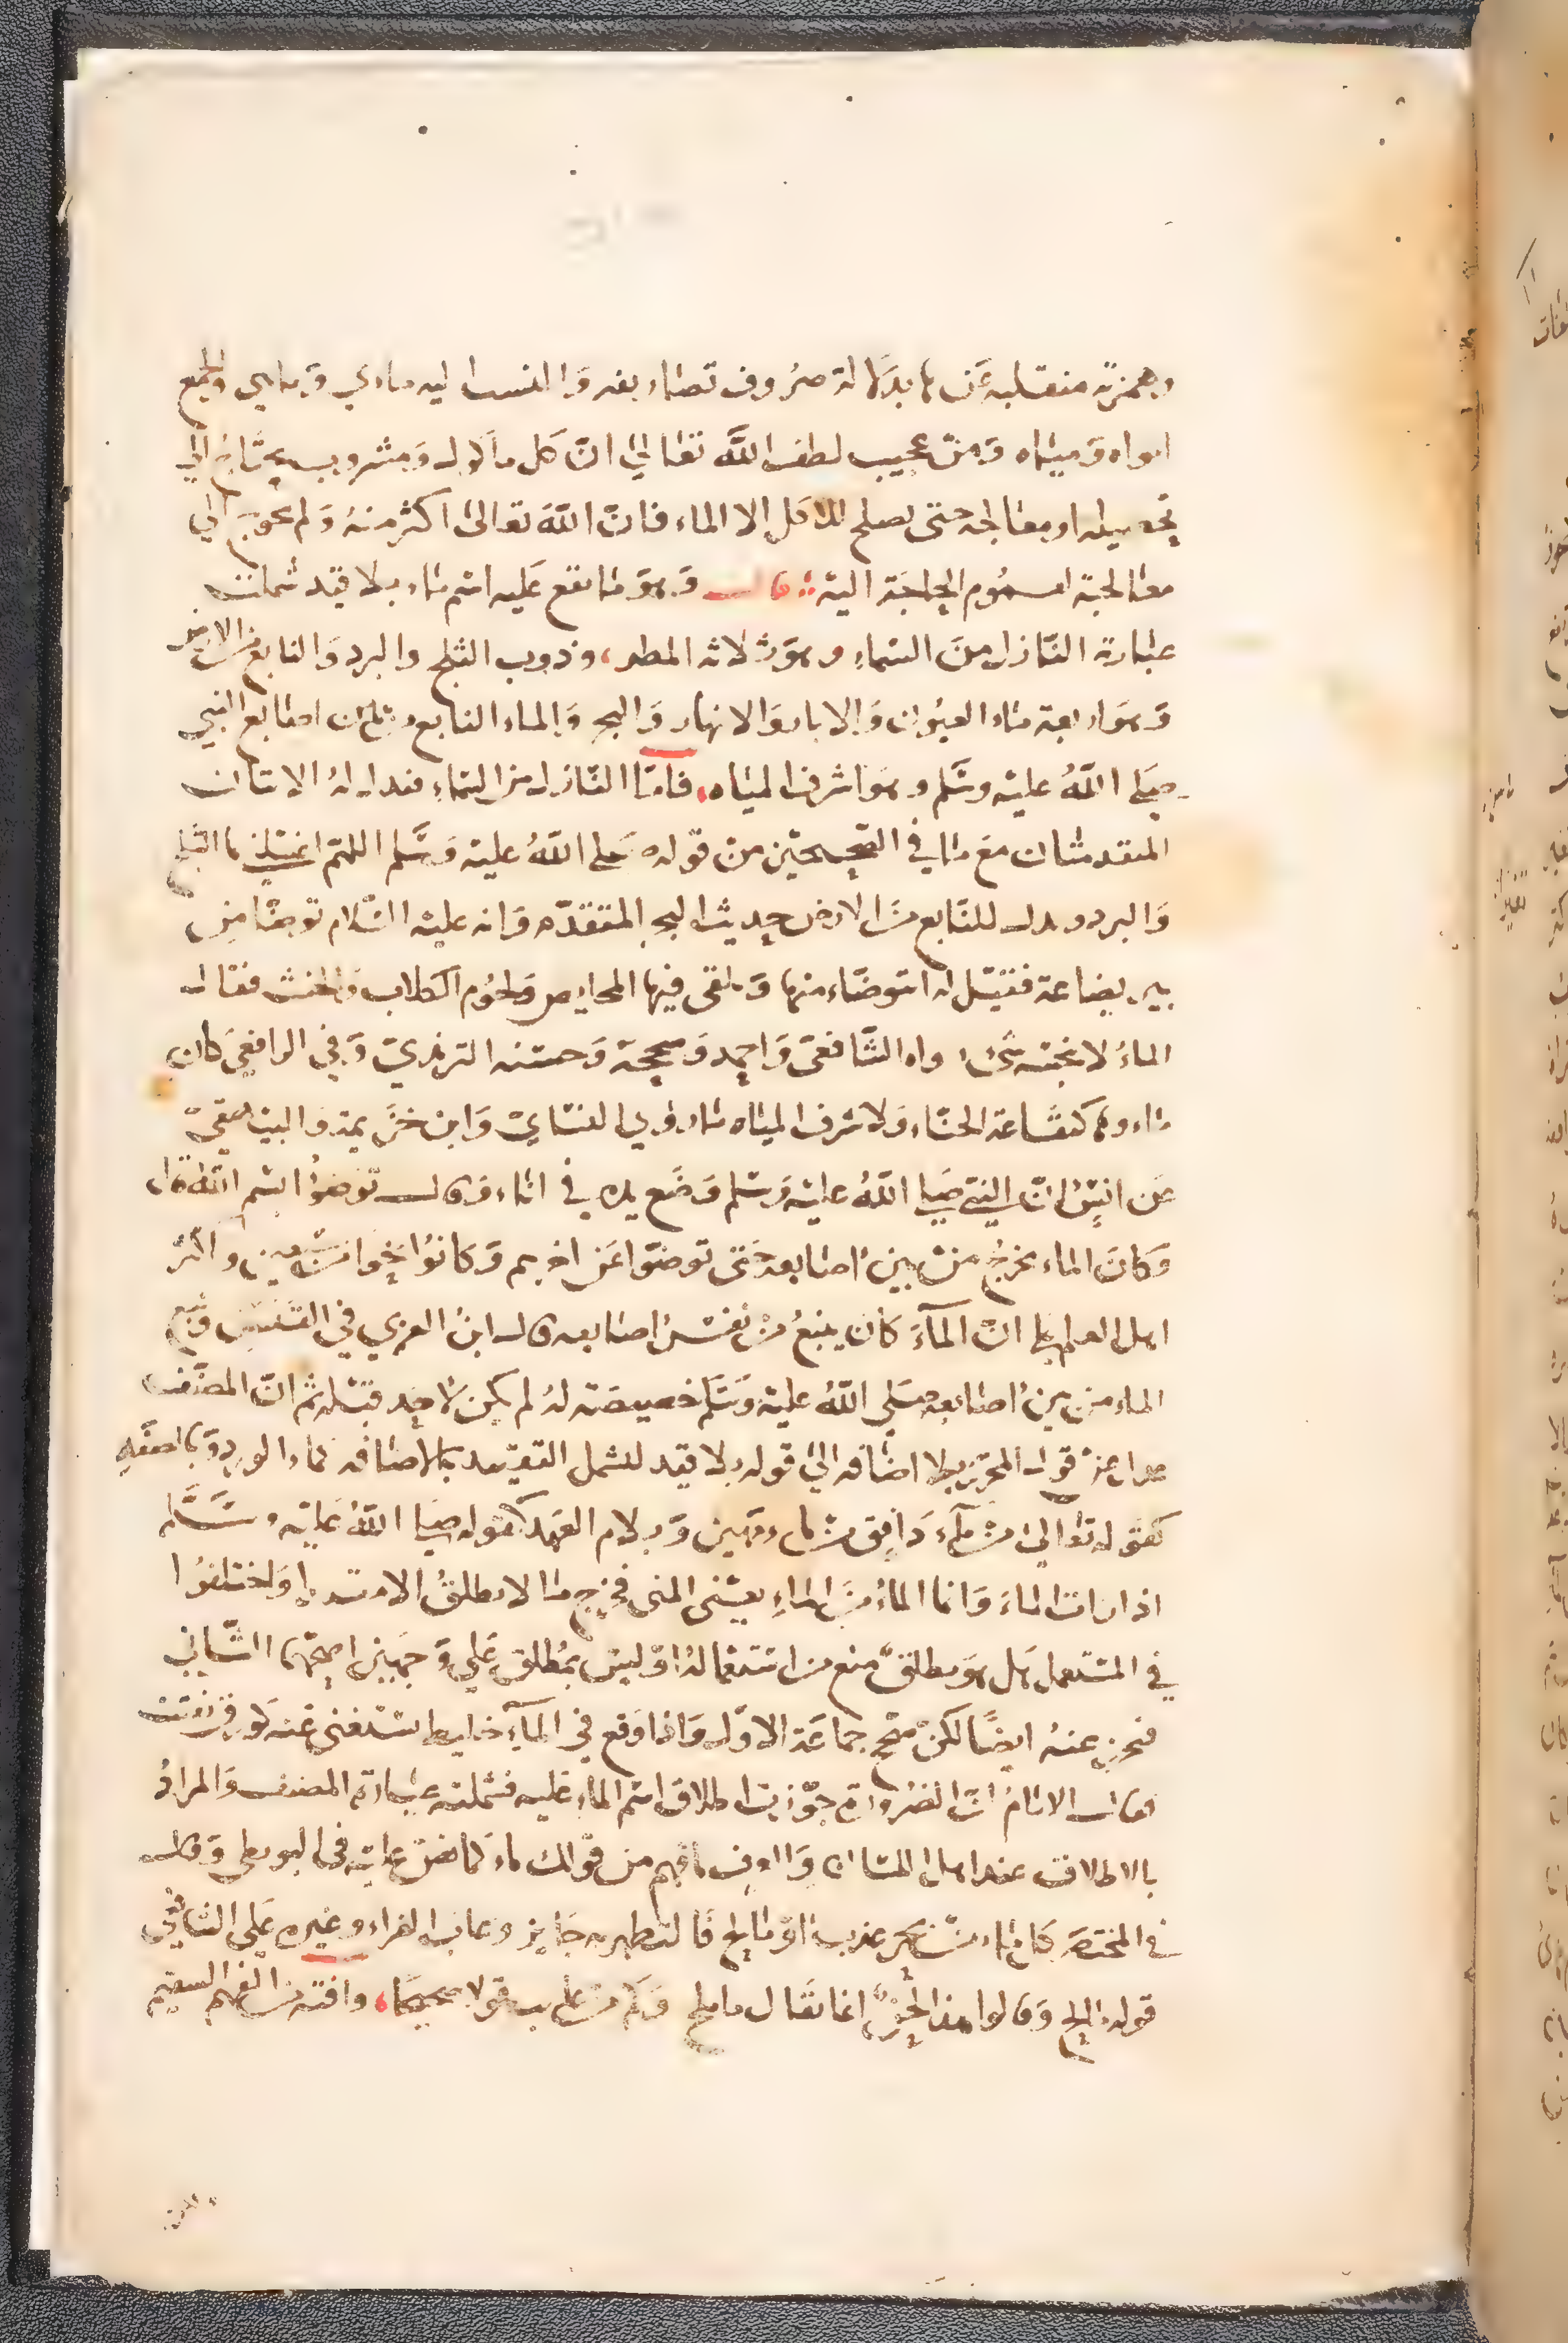 وهمزته منقلبة عن ها بدلالة ضروب تصاريفه والنسب اليه ماءي وماوي والجمع
امواه ومياه ومن عجيب لطف الله تعالى ان كل ماكول ومشروب يحتاج الى
تحصيله او معالجة حتى يصلح للاكل الا الماء فان الله تعالى اكثر منه ولم يحوج الى
معالجته لعموم الحاجة اليه قال وهو ما يقع عليه اسم ماء بلا قيد شملت
عبارة النازل من السماء وهو ثلاثة المطر وذوب الثلج والبرد والنابع من الارض
وهو اربعة ماء العيون والابار والانهار والبحر والماء النابع من اصابع النبي
صلى الله عليه وسلم وهو اشرف المياه فاما النازل من السماء فدليله الايتان
المتقدمتان مع ما في الصحيحين من قوله صلى الله عليه وسلم اللهم اغسلني بالثلج
والبرد ودليل النابع من الارض حديث البحر المتقدم وانه عليه السلام توضا من
بير بضاعة فقيل له اتتوضاء منها وتلقى فيها المحايض ولحوم الكلاب والخبث فقال
الماء لا ينجسه شي رواه الشافعي واحمد وصححه وحسنه الترمذي وفي الرافعي كان
ماءوها كنقاعة الحناء ولاشرف المياه ما روي النساي وابن خزيمة والبيهقي
عن انس ان النبي صلى الله عليه وسلم وضع يده في اناء وقال توضوا بسم الله قال
وكان الماء يخرج من بين اصابعه حتى توضوا عن اخرهم وكانوا نحوا من سبعين واكثر
اهل العلم على ان الماء كان ينبع من نفس اصابعه قال ابن العربي في القبس ونبع
الماء من بين اصابعه صلى الله عليه وسلم خصيصة له لم يكن لاحد قبله ثم ان المصنف
عدل عن قول المحرر بلا اضافة الى قوله بلا قيد لتشمل التقييد بالاضافة كماء الورد وبالصفة
كقوله تعالى من ماء دافق من ماء مهين وبلام العهد كقوله صلى الله عليه وسلم
اذا رات الماء وانما الماء من الماء يعني المني فخرج ما لا يطلق الا مقيدا واختلفوا
في المستعمل هل هو مطلق منع من استعماله او ليس بمطلق على وجهين اصحهما الثاني
فخرج عنه ايضا لكن صحح جماعة الاول واذا وقع في الماء خليط يستغنى عنه كورق تفتت
فقال الامام ان الضرورة جوزت اطلاق اسم الماء عليه فشملته عبارة المصنف والمراد
بالاطلاق عند اهل اللسان والعرف ما فهم من قولك ماء كما نص عليه في البويطي وقال
في المختصر كل ماء من بحر عذب او مالح فالتطهر به جايز وعاب الفراء وغيره على الشافعي
قوله مالح وقالوا هذا لحن انما يقال ماء ملح وكم من عايب قولا صحيحا وافته من الفهم السقيم